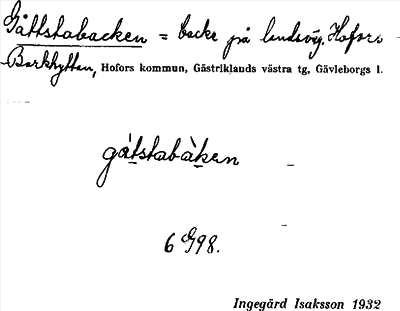 Gåttstabacken = backe på landsväg. Hofors
Barkhyttan, Hofors kommun, Gästriklands västra tg, Gävleborgs l.
gåtstabàken
6 G98.
Ingegärd Isaksson 1932